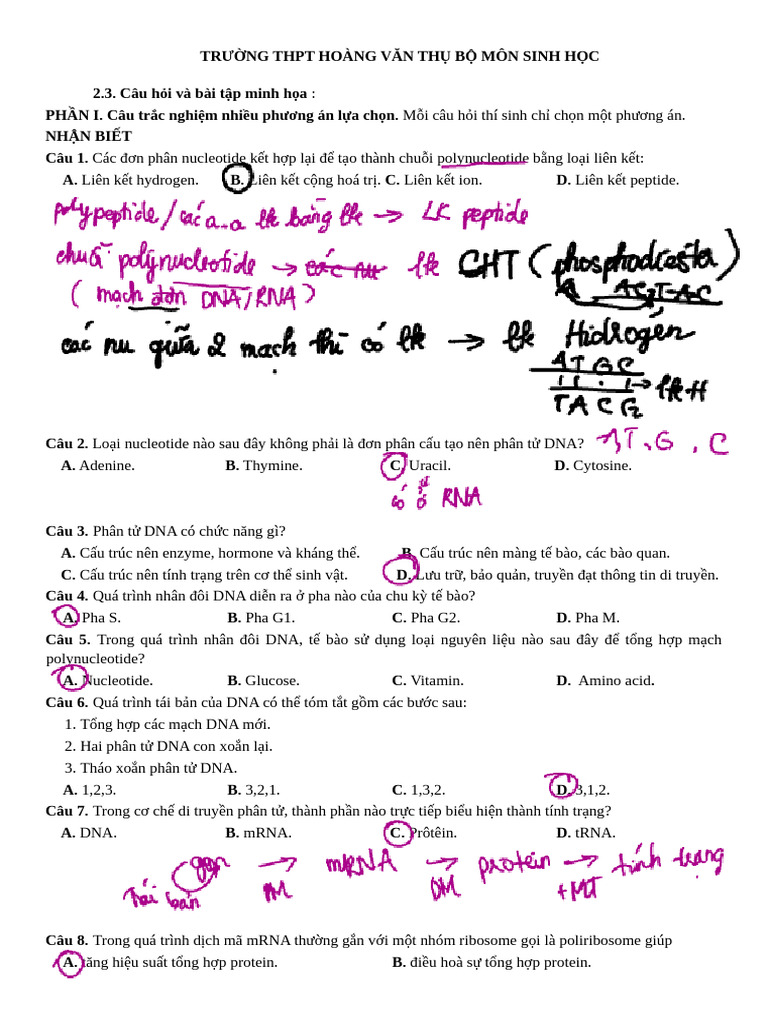 TRƯỜNG THPT HOÀNG VĂN THỤ BỘ MÔN SINH HỌC
2.3. Câu hỏi và bài tập minh họa :
PHẦN I. Câu trắc nghiệm nhiều phương án lựa chọn. Mỗi câu hỏi thí sinh chỉ chọn một phương án.
NHẬN BIẾT
Câu 1. Các đơn phân nucleotide kết hợp lại để tạo thành chuỗi polynucleotide bằng loại liên kết:
A. Liên kết hydrogen. B. Liên kết cộng hoá trị. C. Liên kết ion. D. Liên kết peptide.
polypeptide / các a.a lk bằng lk → LK peptide
chuỗi polynucleotide → các nu lk CHT (
(mạch đơn DNA/RNA)
các nu giữa 2 mạch thì có lk → lk Hiđrôgen
A T G C
lk H
T A C G
Câu 2. Loại nucleotide nào sau đây không phải là đơn phân cấu tạo nên phân tử DNA? A, T, G, C
A. Adenine. B. Thymine. C. Uracil. D. Cytosine.
có ở RNA
Câu 3. Phân tử DNA có chức năng gì?
A. Cấu trúc nên enzyme, hormone và kháng thể. B. Cấu trúc nên màng tế bào, các bào quan.
C. Cấu trúc nên tính trạng trên cơ thể sinh vật. D. Lưu trữ, bảo quản, truyền đạt thông tin di truyền.
Câu 4. Quá trình nhân đôi DNA diễn ra ở pha nào của chu kỳ tế bào?
A. Pha S. B. Pha G1. C. Pha G2. D. Pha M.
Câu 5. Trong quá trình nhân đôi DNA, tế bào sử dụng loại nguyên liệu nào sau đây để tổng hợp mạch
polynucleotide?
A. Nucleotide. B. Glucose. C. Vitamin. D. Amino acid.
Câu 6. Quá trình tái bản của DNA có thể tóm tắt gồm các bước sau:
1. Tổng hợp các mạch DNA mới.
2. Hai phân tử DNA con xoắn lại.
3. Tháo xoắn phân tử DNA.
A. 1,2,3. B. 3,2,1. C. 1,3,2. D. 3,1,2.
Câu 7. Trong cơ chế di truyền phân tử, thành phần nào trực tiếp biểu hiện thành tính trạng?
A. DNA. B. mRNA. C. Prôtêin. D. tRNA.
gen → mRNA → protein → tính trạng
tái bản PM DM +MT
Câu 8. Trong quá trình dịch mã mRNA thường gắn với một nhóm ribosome gọi là poliribosome giúp
A. tăng hiệu suất tổng hợp protein. B. điều hoà sự tổng hợp protein.